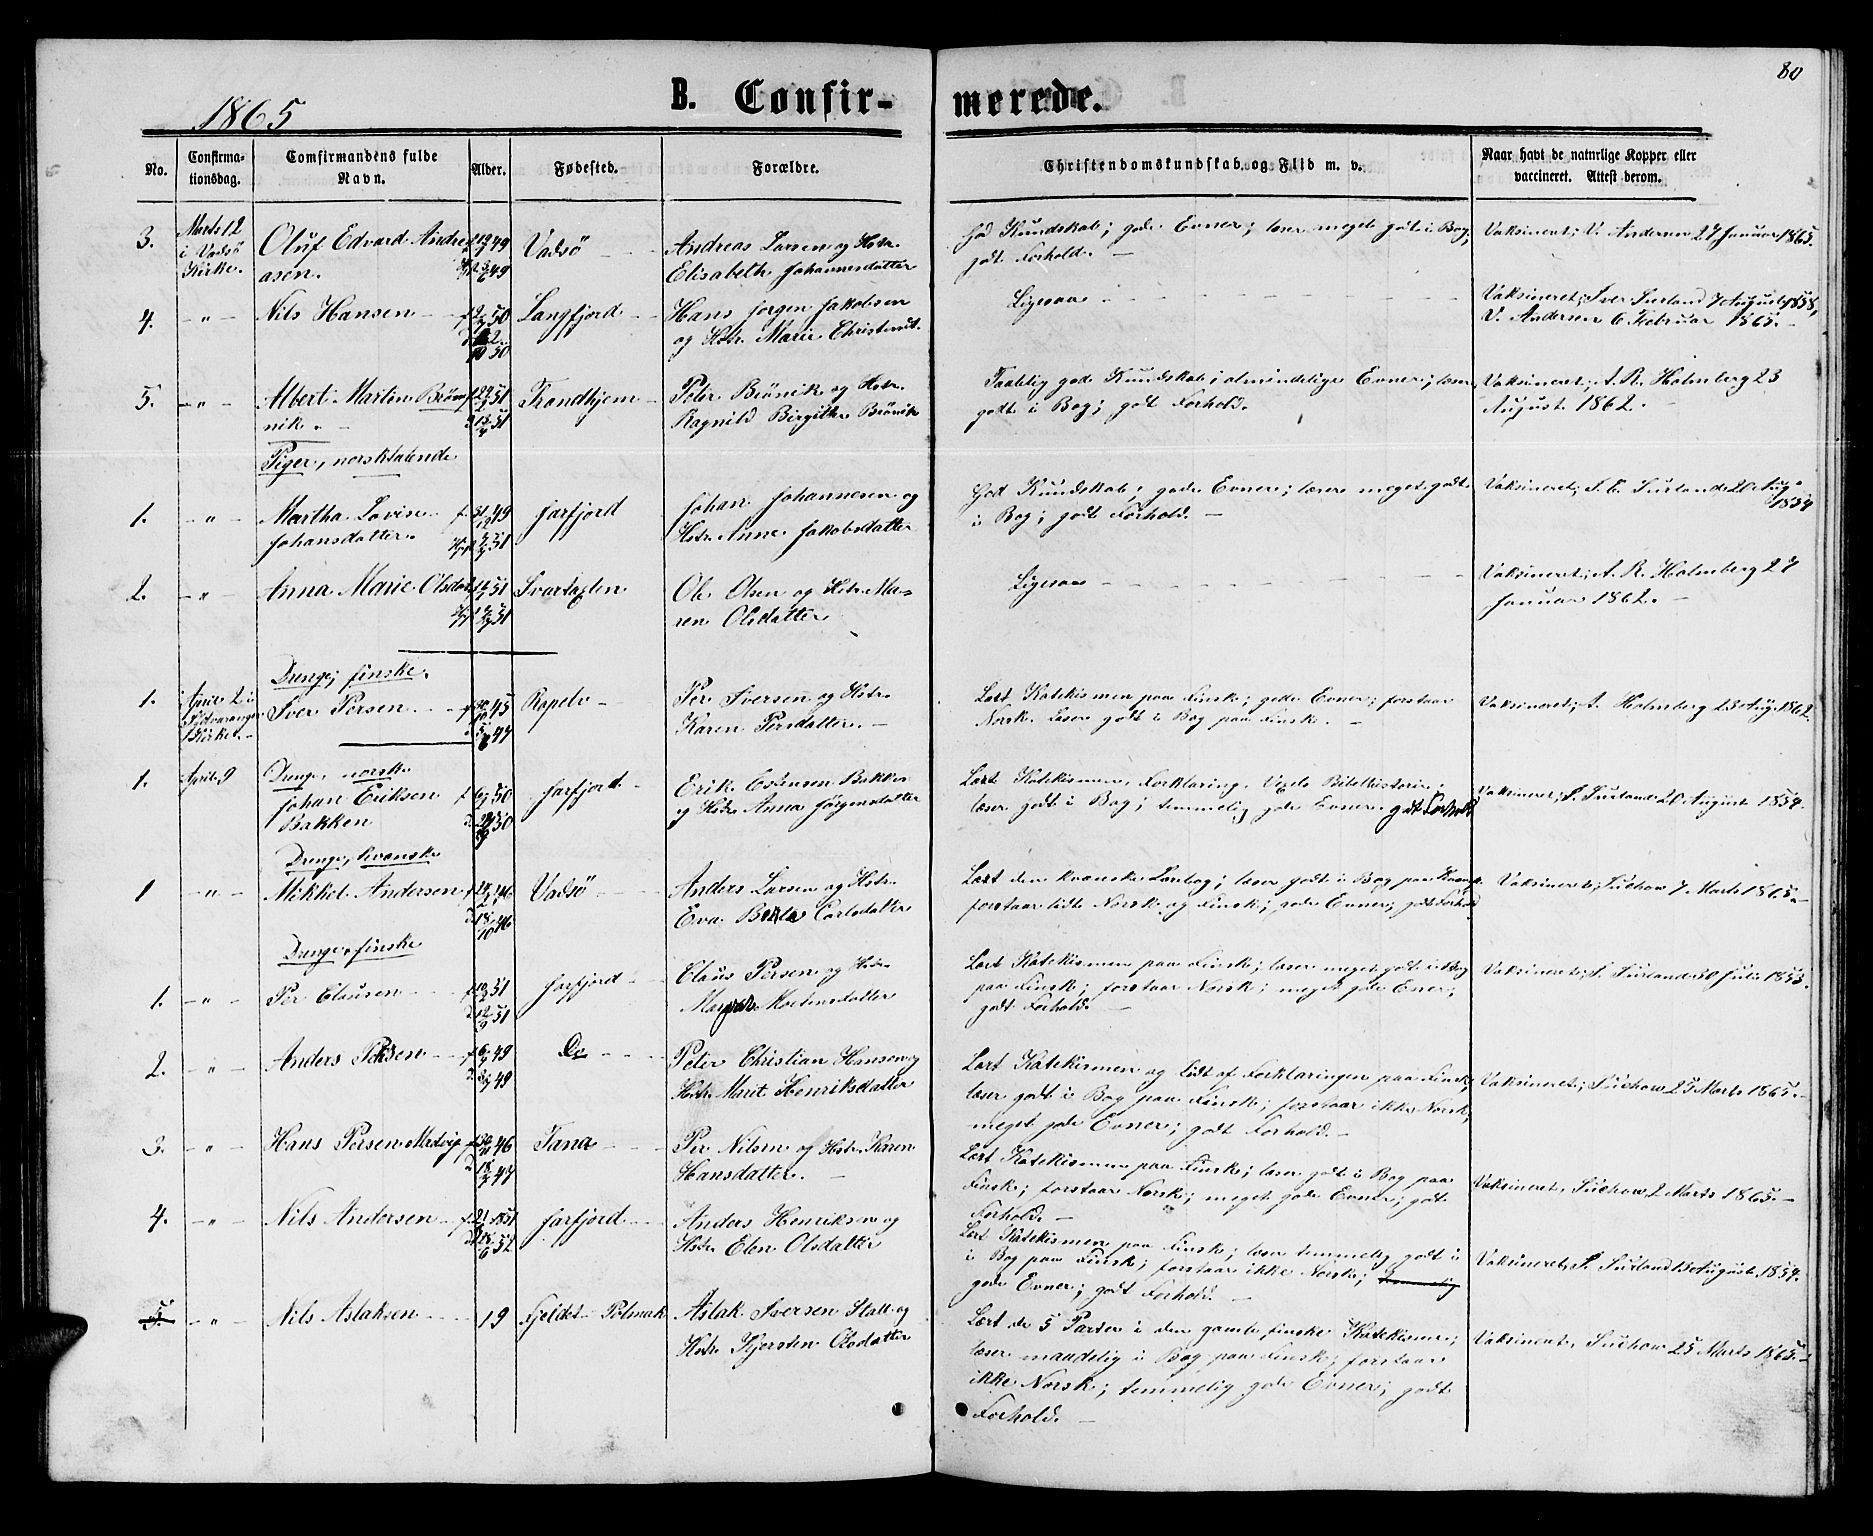 80
1865
B. Confir-
merede.
No.
Confirma-
tionsdag.
Comfirmandens fulde
Navn.
Alder.
Fødested.
Forældre.
Christendomskundskab og Flid m. v.
Naar havt de naturlige Kopper eller
vaccineret. Attest derom.
3. Marts 12 Oluf Edvard Andre 49 Vadsö Andreas Larsen og Hstr. God Kundskab; gode Evner; læser meget godt i Bog; Vaksineret; V. Andersen 27 Januar 1865.
i Vadsö
Kirke. asen. 49 Elisabeth Johannesdatter godt Forhold.
4. „ Nils Hansen 50 Langfjord Hans Jørgen Jakobsen Ligesaa Vaksineret; Iver Surland 7 August 1858,
50 og Hstr. Marie Christensd. V. Andersen 6 Februar 1865.
5. „ Albert Martin Brøn 51 Trondhjem Peter Brönik og Hstr. Taalelig gode Kundskab; almindelige Evner; læser Vaksineret; A. R. Holmberg 23
nik. 51 Ragnild Birgithe Brönik godt i Bog; godt Forhold. August 1862.
Piger, norsktalende
1. „ Martha Lovise 49 Jarfjord Johan Johannesen og God Kundskab; gode Evner; læser meget godt Vaksineret; S. E. Surland 20 Aug.
Johansdatter. 51 Hstr. Anne Jakobsdatter i Bog; godt Forhold. 1854
2. „ Anna Marie Olsdat 51 Svartaxlen Ole Olsen og Hstr. Ma- Ligesaa Vaksineret; A. R. Holmberg 27
51 ren Olsdatter Januar 1862.
Drenge, finske.
1. April 2 i Iver Persen 45 Ropelv Per Iversen og Hstr. Lært Katekismen paa Finsk; gode Evner; forstaar Vaksineret; A. Holmberg 23 Aug. 1862
Sydvaranger
Kirke. 47 Karen Persdatter. Norsk. Læser godt i Bog paa Finsk.
Drenge, norske
1. April 9 Johan Eriksen 50 Jarfjord Erik Estensen Bakken Lært Katekismen, Forklaring, Vogts Bibelhistorie; Vaksineret; S. Surland 20 August 1854.
Bakken 50 og Hstr. Anna Jørgensdatter læser godt i Bog; temmelig gode Evner. godt Forhold
Drenge, kvænske
1 „ Mikkel Andersen 46 Vadsö Anders Larsen og Hstr. Lært den kvænske Lærebog; læser godt i Bog paa Kvænsk. Vaksineret; Suchow 7 Marts 1865.
46 Eva Carlsdatter forstaar lidt Norsk og Finsk; gode Evner; godt Forhold
Drenge, finske
1. „ Per Clausen 51 Jarfjord Claus Persen og Hstr. Lært Katekismen paa Finsk; læser meget godt i Bog Vaksineret; S. Surland 30 Juli 1853.
51 Mortensdatter paa Finsk; forstaar Norsk; meget gode Evner;
godt Forhold.
2. „ Anders 49 Do Peter Christian Hansen og Lært Katekismen og Lidt af Forklaringen paa Finsk; Vaksineret; Suchow 25 Marts 1865.
49 Hstr. Marit Henriksdatter læser godt i Bog paa Finsk; forstaar ikke Norsk;
meget gode Evner; godt Forhold.
3. „ Hans Persen 46 Tana Per Nilsen og Hstr. Karen Lært Katekismen paa Finsk; læser godt i Bog paa Vaksineret, Suchow 2 Marts 1865.
47 Hansdatter. Finsk; forstaar Norsk; meget gode Evner; godt
Forhold.
4. „ Nils Andersen 1851 Jarfjord Anders Henriksen og Lært Katekismen paa Finsk; læser temmelig godt i Vaksineret, S. Surland 13 August 1854.
52 Hstr. Elen Olsdatter i Bog paa Finsk; forstaar ikke Norsk; temmelig
gode Evner; godt Forhold.
5. „ Nils Aslaksen 19 Fjeldet Polmak Aslak Iversen Stall og Lært de 5 Parter i den gamle finske Katekisme; Vaksineret, Suchow 25 Marts 1865.
Hstr. Kjersten Olsdatter læser maadelig i Bog paa Finsk; forstaar
ikke Norsk; temmelig gode Evner; godt
Forhold.